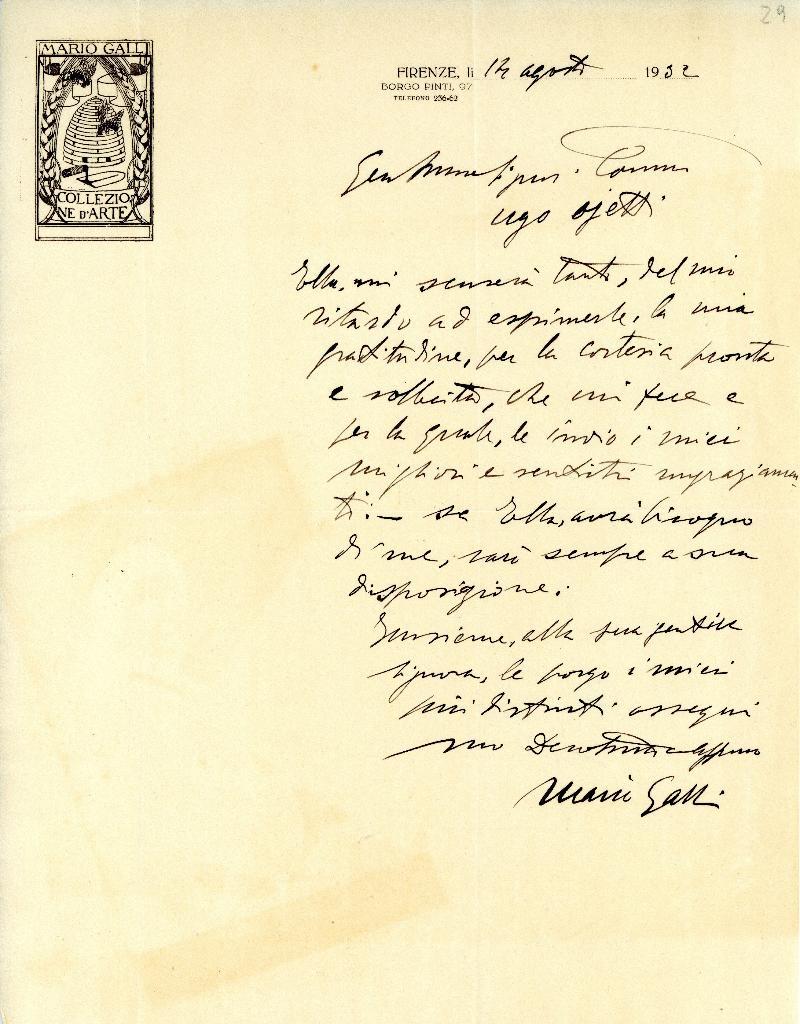 29
MARIO GALLI
COLLEZIO
NE D'ARTE
FIRENZE, li 14 agosto 1932
BORGO PINTI, 97
TELEFONO 236-62
Gentilissimo Signor Comm
Ugo Ojetti
Ella, mi scuserà tanto, del mio
ritardo ad esprimerle, la mia
gratitudine, per la cortesia pronta
e sollecita, che mi fece e
per la quale, le invio i miei
migliori e sentiti ringraziamen
ti: – se Ella, avrà bisogno
di me, sarò sempre a sua
disposizione.
Insieme, alla sua gentile
signora, le porgo i miei
più distinti ossequi
suo Devotissimo
Mario Galli